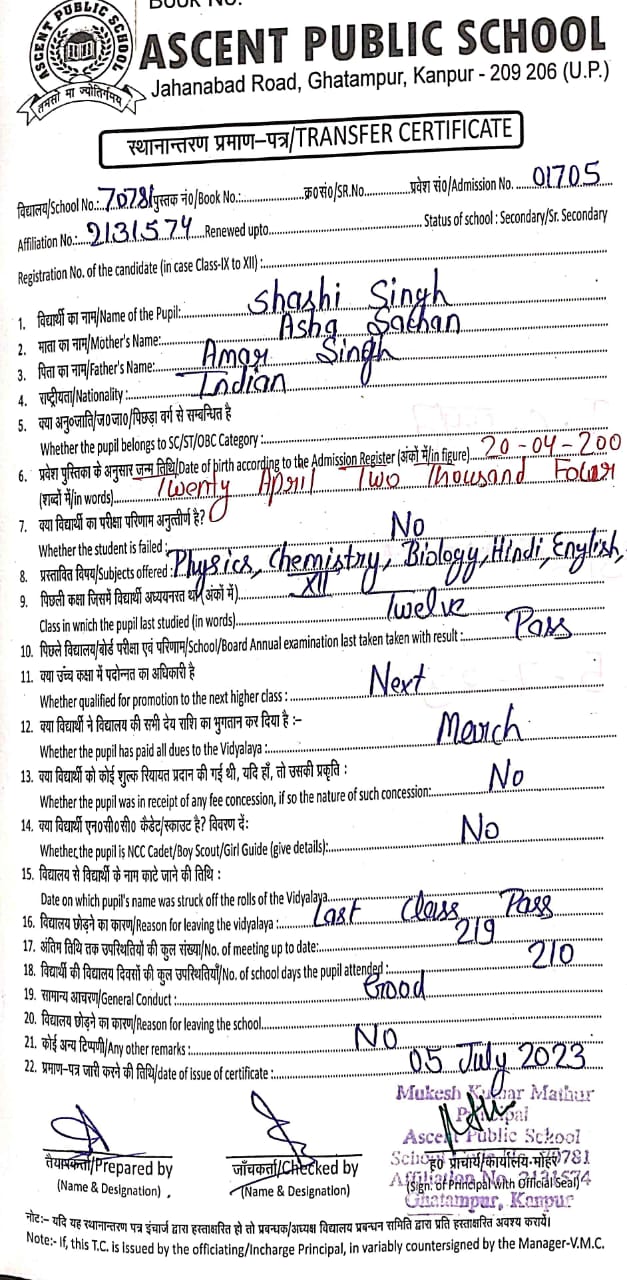 BOOK NO.
ASCENT PUBLIC SCHOOL
तमसो मा ज्योतिर्गमय
ASCENT PUBLIC SCHOOL
Jahanabad Road, Ghatampur, Kanpur - 209 206 (U.P.)
स्थानान्तरण प्रमाण-पत्र/TRANSFER CERTIFICATE
विद्यालय/School No.: 70781 पुस्तक नं०/Book No.: क्र०सं०/SR.No. प्रवेश सं०/Admission No. 01705
Affiliation No.: 2131574 Renewed upto Status of school : Secondary/Sr. Secondary
Registration No. of the candidate (in case Class-IX to XII) :
1. विद्यार्थी का नाम/Name of the Pupil: Shashi Singh
2. माता का नाम/Mother's Name: Asha Sachan
3. पिता का नाम/Father's Name: Amar Singh
4. राष्ट्रीयता/Nationality : Indian
5. क्या अनु०जाति/ज०जा०/पिछड़ा वर्ग से सम्बन्धित है
Whether the pupil belongs to SC/ST/OBC Category :
6. प्रवेश पुस्तिका के अनुसार जन्म तिथि/Date of birth according to the Admission Register (अंकों में/in figure) 20-04-200
(शब्दों में/in words) Twenty April Two Thousand Four
7. क्या विद्यार्थी का परीक्षा परिणाम अनुत्तीर्ण है?
Whether the student is failed : No
8. प्रस्तावित विषय/Subjects offered : Physics, Chemistry, Biology, Hindi, English,
9. पिछली कक्षा जिसमें विद्यार्थी अध्ययनरत था (अंकों में) XII
Class in wnich the pupil last studied (in words) Twelve
10. पिछले विद्यालय/बोर्ड परीक्षा एवं परिणाम/School/Board Annual examination last taken taken with result : Pass
11. क्या उच्च कक्षा में पदोन्नत का अधिकारी है
Whether qualified for promotion to the next higher class : Next
12. क्या विद्यार्थी ने विद्यालय की सभी देय राशि का भुगतान कर दिया है :-
Whether the pupil has paid all dues to the Vidyalaya : March
13. क्या विद्यार्थी को कोई शुल्क रियायत प्रदान की गई थी, यदि हाँ, तो उसकी प्रकृति :
Whether the pupil was in receipt of any fee concession, if so the nature of such concession: No
14. क्या विद्यार्थी एन०सी०सी० कैडेट/स्काउट है? विवरण दें:
Whether,the pupil is NCC Cadet/Boy Scout/Girl Guide (give details): No
15. विद्यालय से विद्यार्थी के नाम काटे जाने की तिथि :
Date on which pupil's name was struck off the rolls of the Vidyalaya
16. विद्यालय छोड़ने का कारण/Reason for leaving the vidyalaya : Last Class Pass
17. अंतिम तिथि तक उपस्थितियों की कुल संख्या/No. of meeting up to date: 219
18. विद्यार्थी की विद्यालय दिवसों की कुल उपस्थितियाँ/No. of school days the pupil attended : 210
19. सामान्य आचरण/General Conduct : Good
20. विद्यालय छोड़ने का कारण/Reason for leaving the school
21. कोई अन्य टिप्पणी/Any other remarks : No
22. प्रमाण-पत्र जारी करने की तिथि/date of issue of certificate : 05 July 2023
Mukesh Kumar Mathur
Principal
Ascent Public School
तैयारकर्ता/Prepared by जाँचकर्ता/Checked by ह० प्राचार्य/कार्यालय-मोहर
School 70781
(Name & Designation) (Name & Designation) (Sign. of Principal with Official Seal)
Affiliation No. 2131574
Ghatampur, Kanpur
नोट:- यदि यह स्थानान्तरण पत्र इंचार्ज द्वारा हस्ताक्षरित हो तो प्रबन्धक/अध्यक्ष विद्यालय प्रबन्धन समिति द्वारा प्रति हस्ताक्षरित अवश्य करायें।
Note:- If, this T.C. is Issued by the officiating/Incharge Principal, in variably countersigned by the Manager-V.M.C.